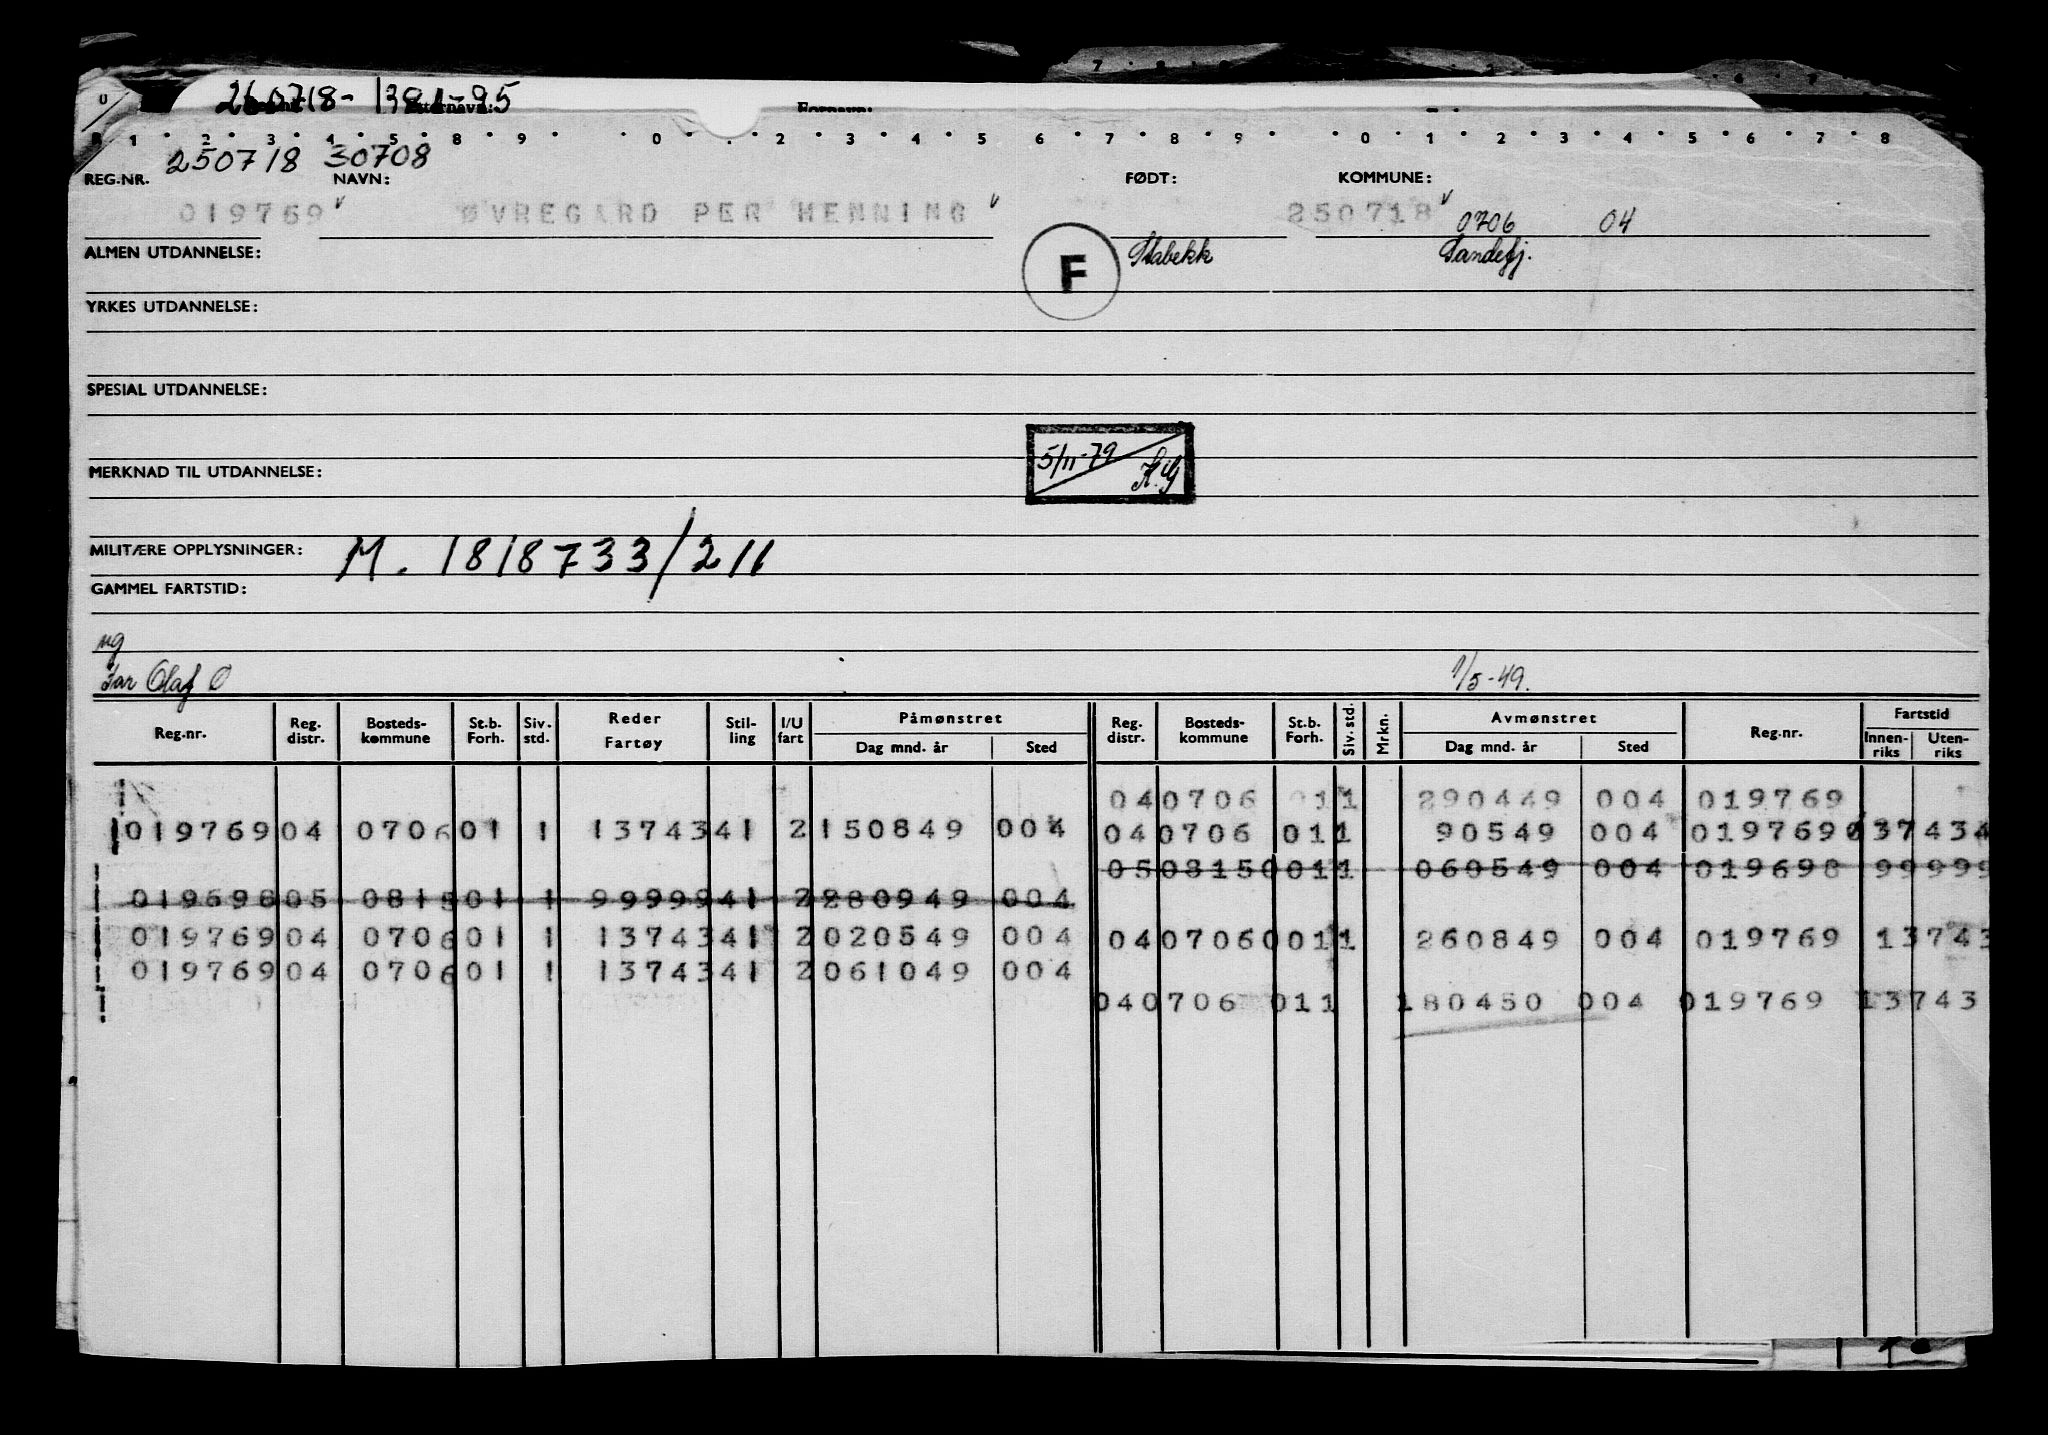 7 8 9 2 6 7
U 260718- 13 -95
Fornavn:
1 2 3 4 5 8 9 0 1 2 3 4 5 6 7 8 9 0 1 2 3 4 5 6 7 8
250718 30708
REG.NR. NAVN: FØDT: KOMMUNE:
019769 v ØVREGARD PER HENNING v 250718 v 0706 04
ALMEN UTDANNELSE: F Stabekk Sandefj.
YRKES UTDANNELSE:
SPESIAL UTDANNELSE:
5/11-79
MERKNAD TIL UTDANNELSE:
MILITÆRE OPPLYSNINGER: M. 1818733/211
GAMMEL FARTSTID:
ug
Far Olaf Ø 1/5-49.
Reg.nr. Reg. distr. Bosteds- kommune St.b. Forh. Siv. std. Reder Fartøy Stil- ling I/U fart Påmønstret Dag mnd. år Sted Reg. distr. Bosteds- kommune St.b. Forh. Siv. std. Mrkn. Avmønstret Dag mnd. år Sted Reg.nr. Fartstid Innen- riks Uten- riks
04 0706 011 290449 004 019769
019769 04 0706 01 1 13743 41 2 150849 004 04 0706 01 1 90549 004 019769 137434
05 0815 0011 060549 004 019698 99999
019698 05 0815 01 1 99999 41 2 280949 004
019769 04 0706 01 1 13743 41 2 020549 004 04 0706 001 1 260849 004 019769 13743
019769 04 0706 01 1 13743 41 2 061049 004
04 0706 01 1 180450 004 019769 13743